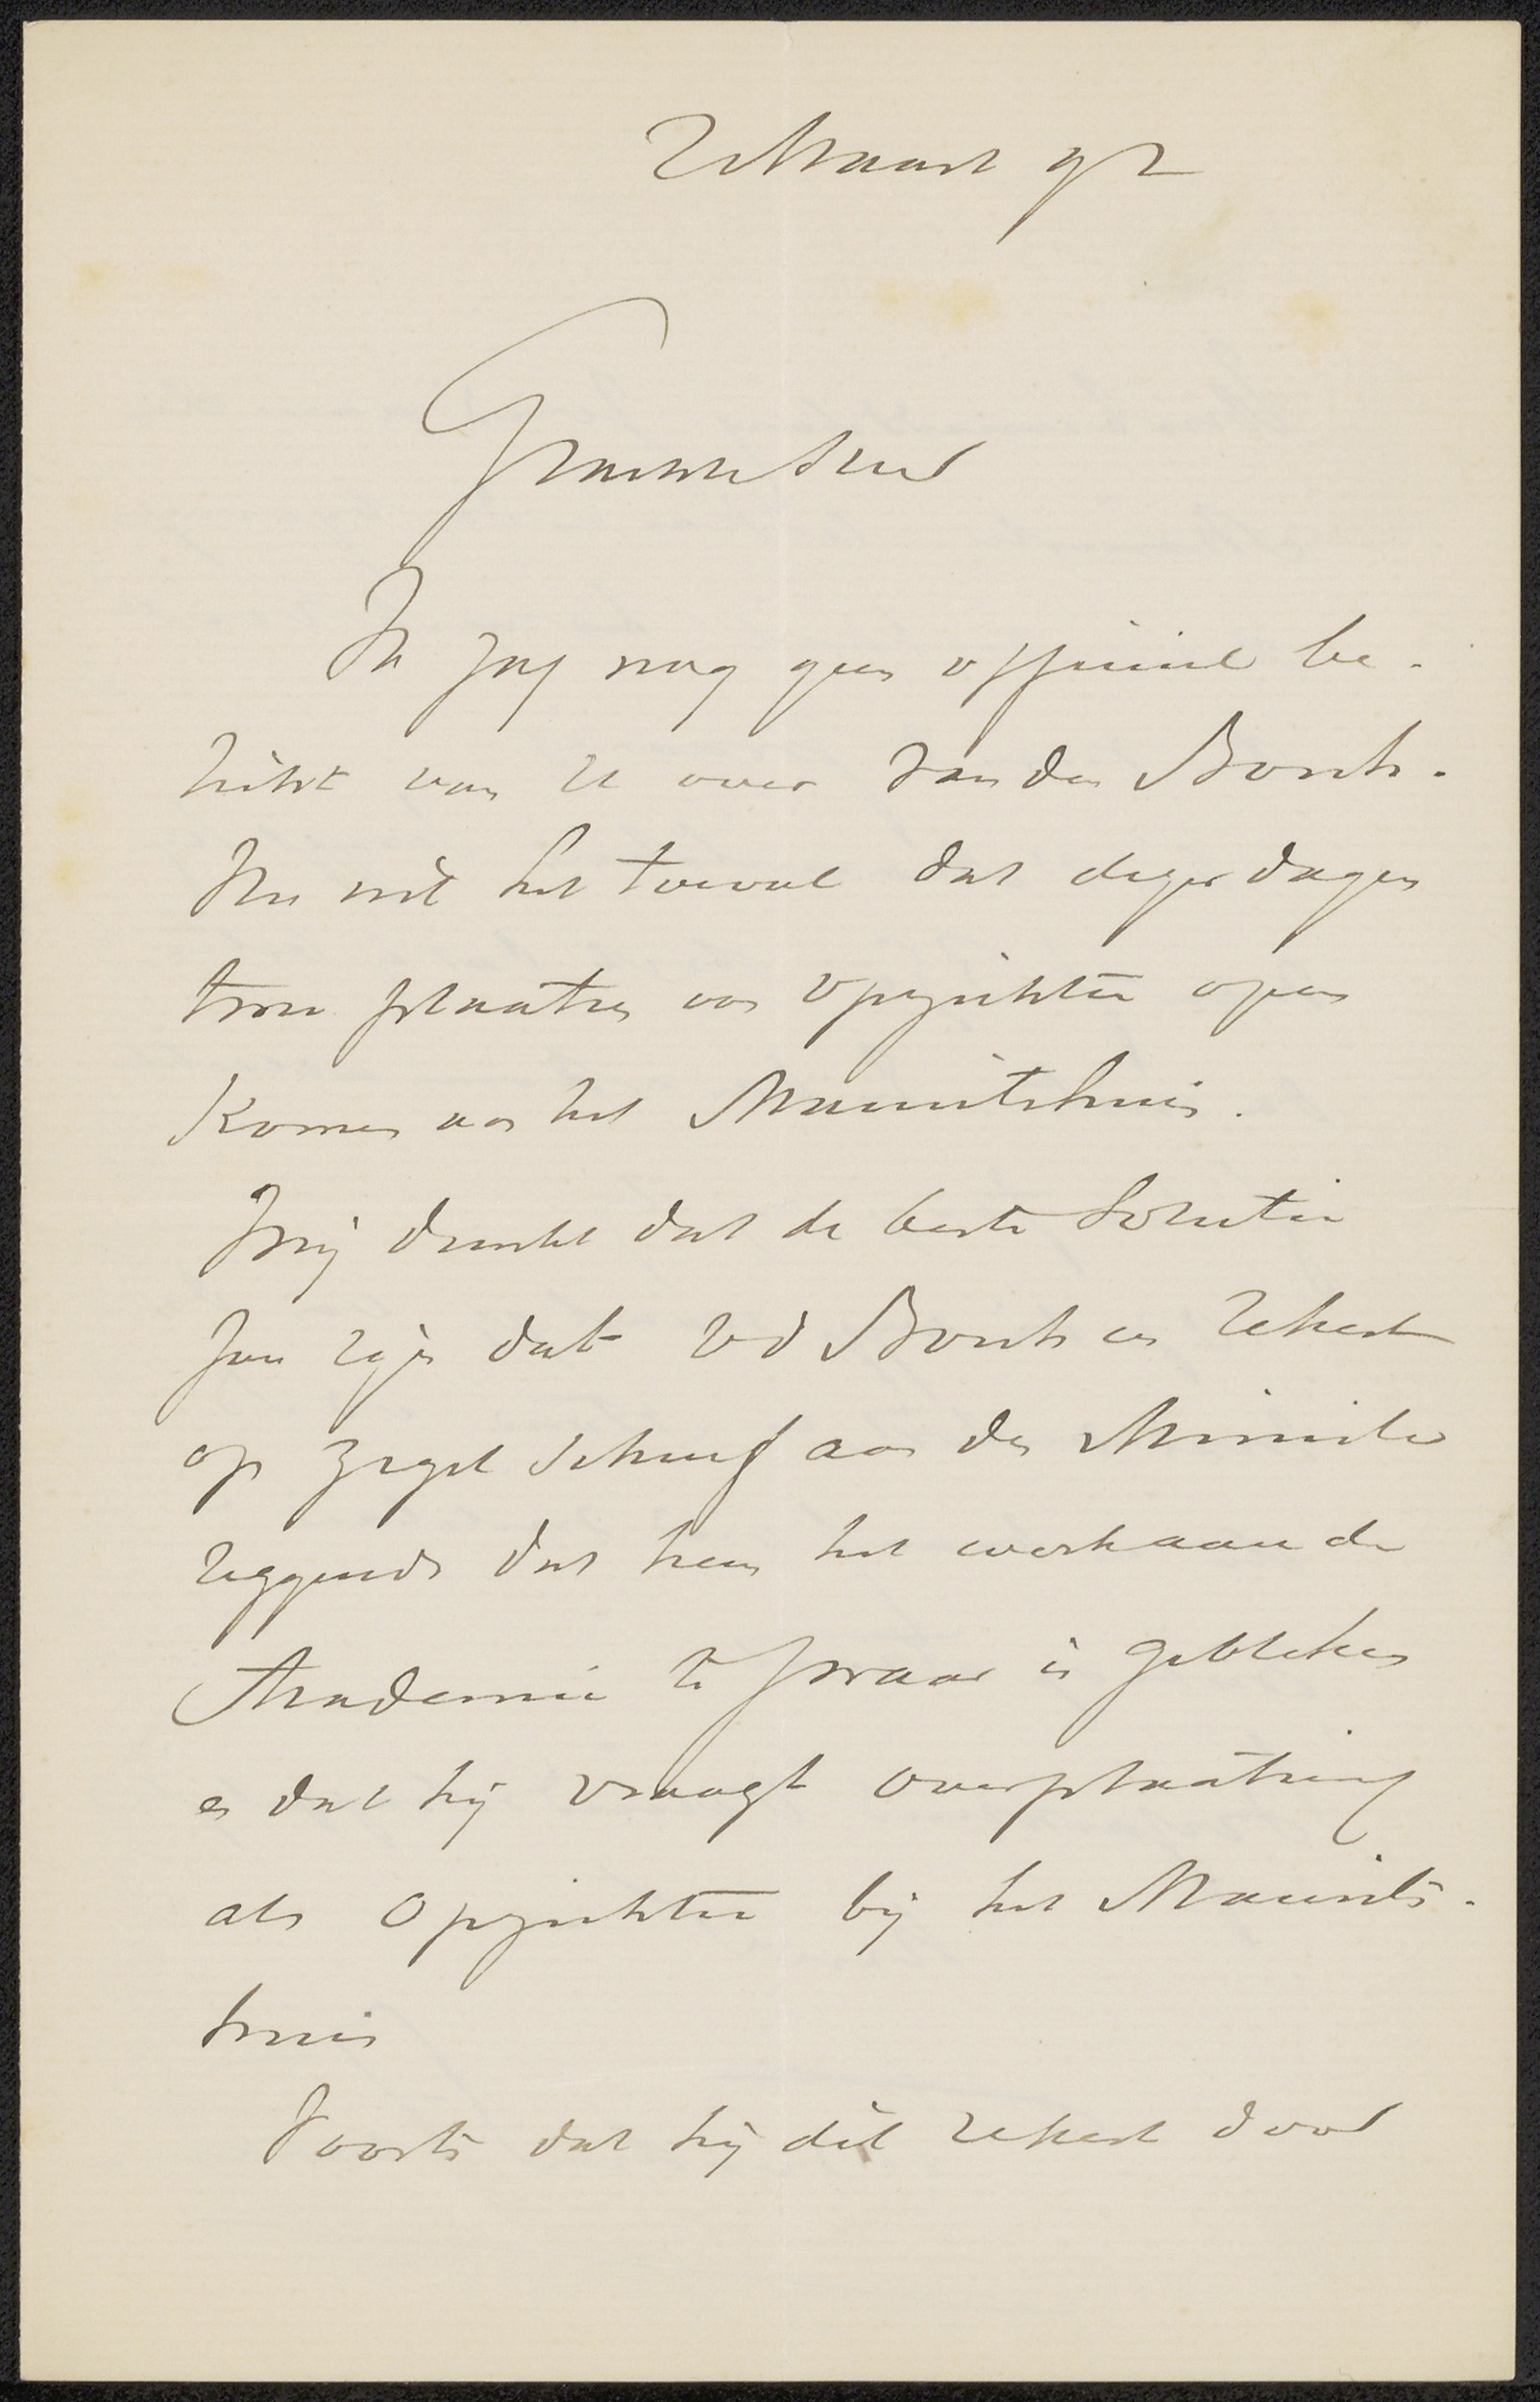 2 Maart 92
Geachte Heer
Ik zag nog geen officieel be-
richt van U over van den Bosch.
Nu wil het toeval dat dezer dagen
twee plaatsen van opzichter open
komen aan het Mauritshuis.
Mij dunkt dat de beste solutie
zou zijn dat vd Bosch een rekest
op zegel schreef aan den Minister
zeggende dat hem het werk aan de
Academie te zwaar is gebleken
en dat hij vraagt overplaatsing
als opzichter bij het Maurits-
huis
Voorts dat hij dit rekest door